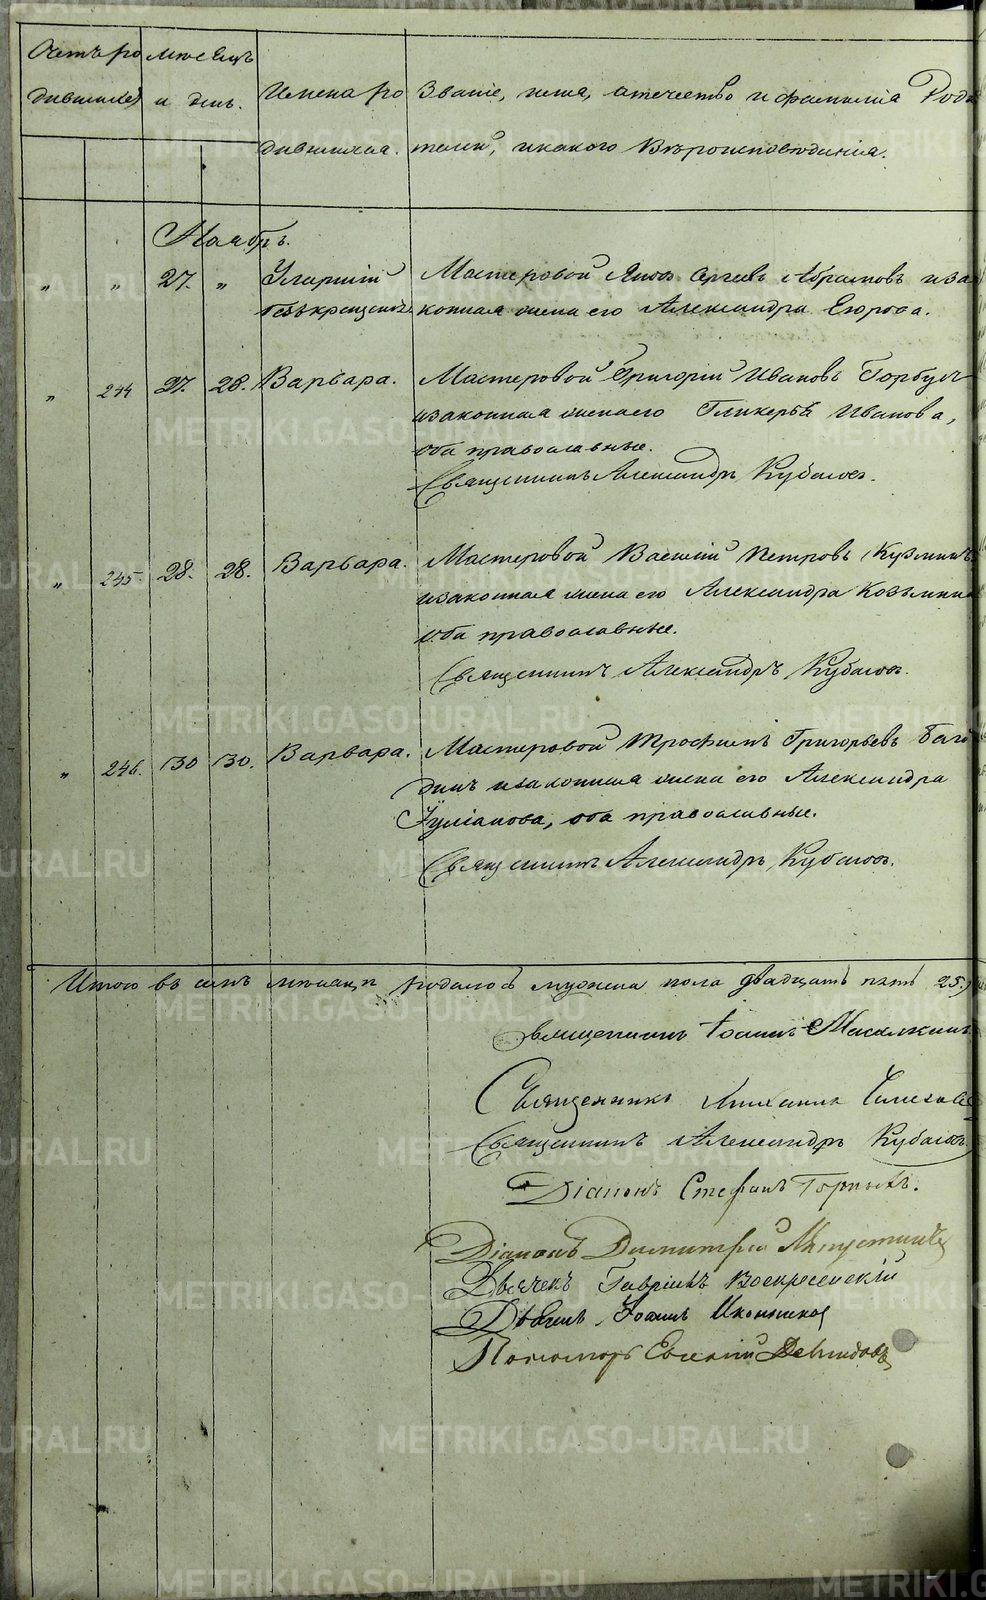 Счетъ ро
дившихся
месяцъ
и день.
Имена ро
дившихся.
Званіе, имя, отечество и фамилія Роди
телей, и какого Вѣроисповѣданія.
Ноябрь.
„ „ 27. „ Иларій Мастеровой Яковъ Сергеевъ Абрамовъ и за
конная жена его Александра Егорова.
„ 244 27. 28. Варвара. Мастеровой Григорій Ивановъ
и законная жена его Гликерья Иванова,
оба православные.
Священникъ Александръ Кубасовъ.
„ 245. 28. 28. Варвара. Мастеровой Василій Петровъ Кузминъ
и законная жена его Александра Козьмина
оба православные.
Священникъ Александръ Кубасовъ.
„ 246. 30 30. Варвара. Мастеровой Трофимъ Григорьевъ
динъ и законная жена его Александра
оба православные.
Священникъ Александръ Кубасовъ.
Итого въ семъ месяце родилось мужеска пола двадцать пять 25.
Священникъ Іоаннъ
Священникъ Михаилъ
Священникъ Александръ Кубасовъ
Діаконъ Стефанъ Горныхъ.
Діаконъ Димитрій
Дьячекъ Гавріилъ Воскресенскій
Дьячекъ Іоаннъ
Пономарь Евгеній Демидовъ
METRIKI.GASO-URAL.RU